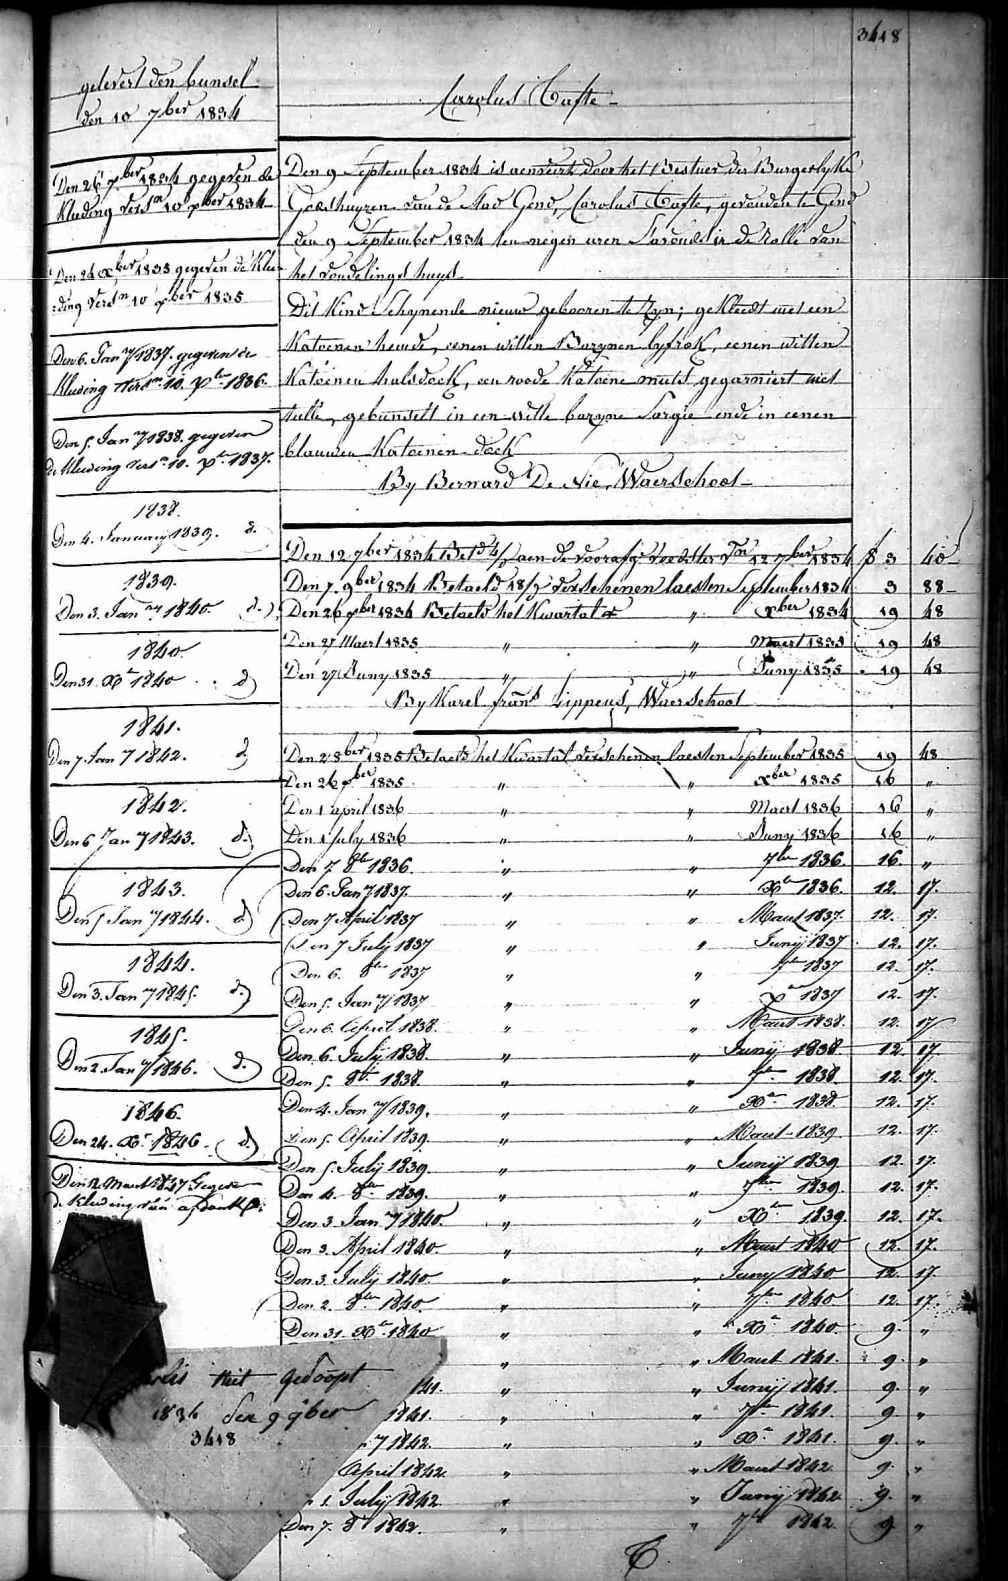 3418
gelevert den bunsel
den 10 7ber 1834
Carolus Tafte
Den 26 xber 1834 gegeven de
kleeding versn 10 xber 1834
Den 24 xber 1835 gegeven de Klee-
ding versn 10 xber 1835
Den 6. Jany 1837. gegeven de
kleeding versn 10. xbr 1836.
Den 5. Jany 1838. gegeven
de kleeding versn 10. xbr 1837.
1838.
Den 4. January 1839. d.
1839.
Den 3. Jany 1840 d.
1840.
Den 31. Xbr 1840 d.
1841.
Den 7. Jany 1842. d.
1842.
Den 6 Jany 1843. d.
1843.
Den 5 Jany 1844. d.
1844.
Den 3. Jany 1845. d.
1845.
Den 2. Jany 1846. d.
1846.
Den 24. Xbr 1846. d.
Den 12 Maert 1847 Gegeven
de kleeding van
Den 9 September 1834 is aenveirt door het Bestuer der Burgerlyke
Godshuyzen van de Stad Gend, Carolus Tafte, gevonden te Gend
den 9 September 1834 ten negen uren S'avonds in de rolle van
het vondelingshuys
Dit Kind Schynende nieuw gebooren te Zyn; gekleedt met een
Katoenen hemde, eenen witten Bazynen lyfrok, eenen witten
Katoenen halsdoek, een roode Katoene muts, gegarniert met
tulle, gebunselt in een witte bazyne Sargie ende in eenen
blauwen Katoenen doek
By Bernard De Nie, Waerschoot
Den 12 7ber 1834 Bet.d aen de voorafg. voedster 12 7ber 1834 3 40
Den 7. 9ber 1834 Betaeld 18/ verschenen laesten September 1834 3 88
Den 26 xber 1834 Betaeld het Kwartael " xber 1834 19 48
Den 27 Maert 1835 " " Maert 1835 19 48
Den 27 Juny 1835 " " Juny 1835 19 48
By Karel frans Lippens, Waerschoot
Den 2 8ber 1835 Betaeld het Kwartael verschenen laesten September 1835 19 48
Den 26 xber 1835 " xber 1835 16 "
Den 1 april 1836 " " Maert 1836 16 "
Den 1 july 1836 " " Juny 1836 16 "
Den 7. 8br 1836. " " 7br 1836. 16. "
Den 6. Jany 1837. " " Xbr 1836. 12. 17.
Den 7 April 1837 " " Maert 1837. 12. 17.
Den 7 July 1837 " " Junij 1837 12. 17.
Den 6. 8br 1837 " " 7br 1837 12. 17.
Den 5. Jany 1837 " " xbr 1837 12. 17.
Den 6. April 1838. " " Maert 1838. 12. 17
Den 6. July 1838. " " Junij 1838 12. 17.
Den 5. 8br 1838. " " 7br 1838 12. 17.
Den 4. Jany 1839. " " Xbr 1838. 12. 17.
Den 5. April 1839. " " Maert 1839 12. 17.
Den 5. July 1839. " " Junij 1839 12. 17.
Den 4. 8br 1839. " " 7br 1839. 12. 17.
Den 3 Jany 1840. " " Xbr 1839. 12. 17.
Den 3. April 1840. " " Maert 1840 12. 17.
Den 3. July 1840 " " Juny 1840 12. 17.
Den 2. 8br 1840. " " 7br 1840 12. 17.
Den 31. Xbr 1840 " " Xbr 1840. 9. "
" " Maert 1841. 9. "
141. " " Junij 1841. 9. "
1841. " " 7br 1841. 9 "
7 1842. " " Xbr 1841. 9. "
April 1842 " " Maert 1842 9. "
1. July 1842 " " Junij 1842 9. "
Den 7. 8br 1842. " " 7br 1842 9. "
niet gedoopt
1834 den 9 9ber
3418